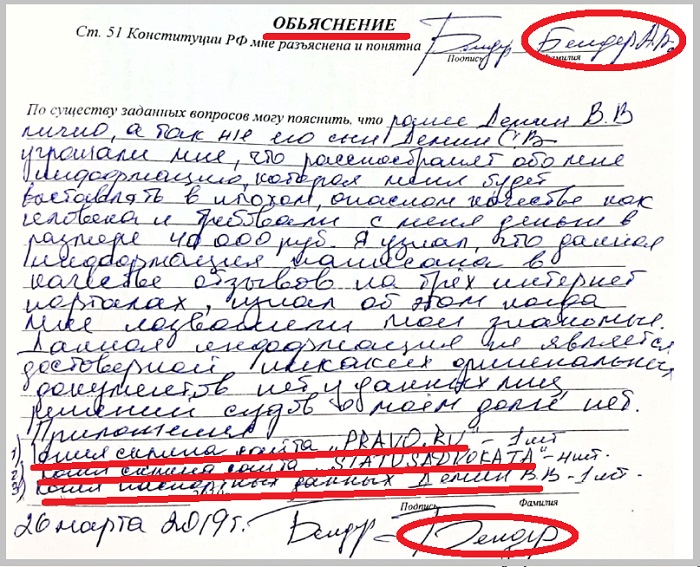 ОБЬЯСНЕНИЕ
Ст. 51 Конституции РФ мне разъяснена и понятна Бендер Бендер А.В.
Подпись Фамилия
По существу заданных вопросов могу пояснить, что ранее Демин В.В
лично, а так же его сын Демин С.В
угрожали мне, что рассностранят обо мне
информацию, которая меня будет
выставлять в плохом, опасном качестве как
человека и требовали с меня деньги в
размере 40 000 руб. Я узнал, что данная
информация написана в
качестве отзывов на трёх интернет
порталах, узнал об этом когда
мне позвонили мои знакомые.
Данная информация не является
достоверной никаких официальных
документов нет у данных лиц,
решений судов о моём долге нет.
Приложения
1) Копия скрина сайта "PRAVO.RU" - 1 шт
2) Копия скрина сайта "STATUSADVOKATA" - 4 шт.
3) Копия паспортных данных Демин В.В - 1 шт.
Подпись Фамилия
26 марта 2019 г. Бендер - Бендер